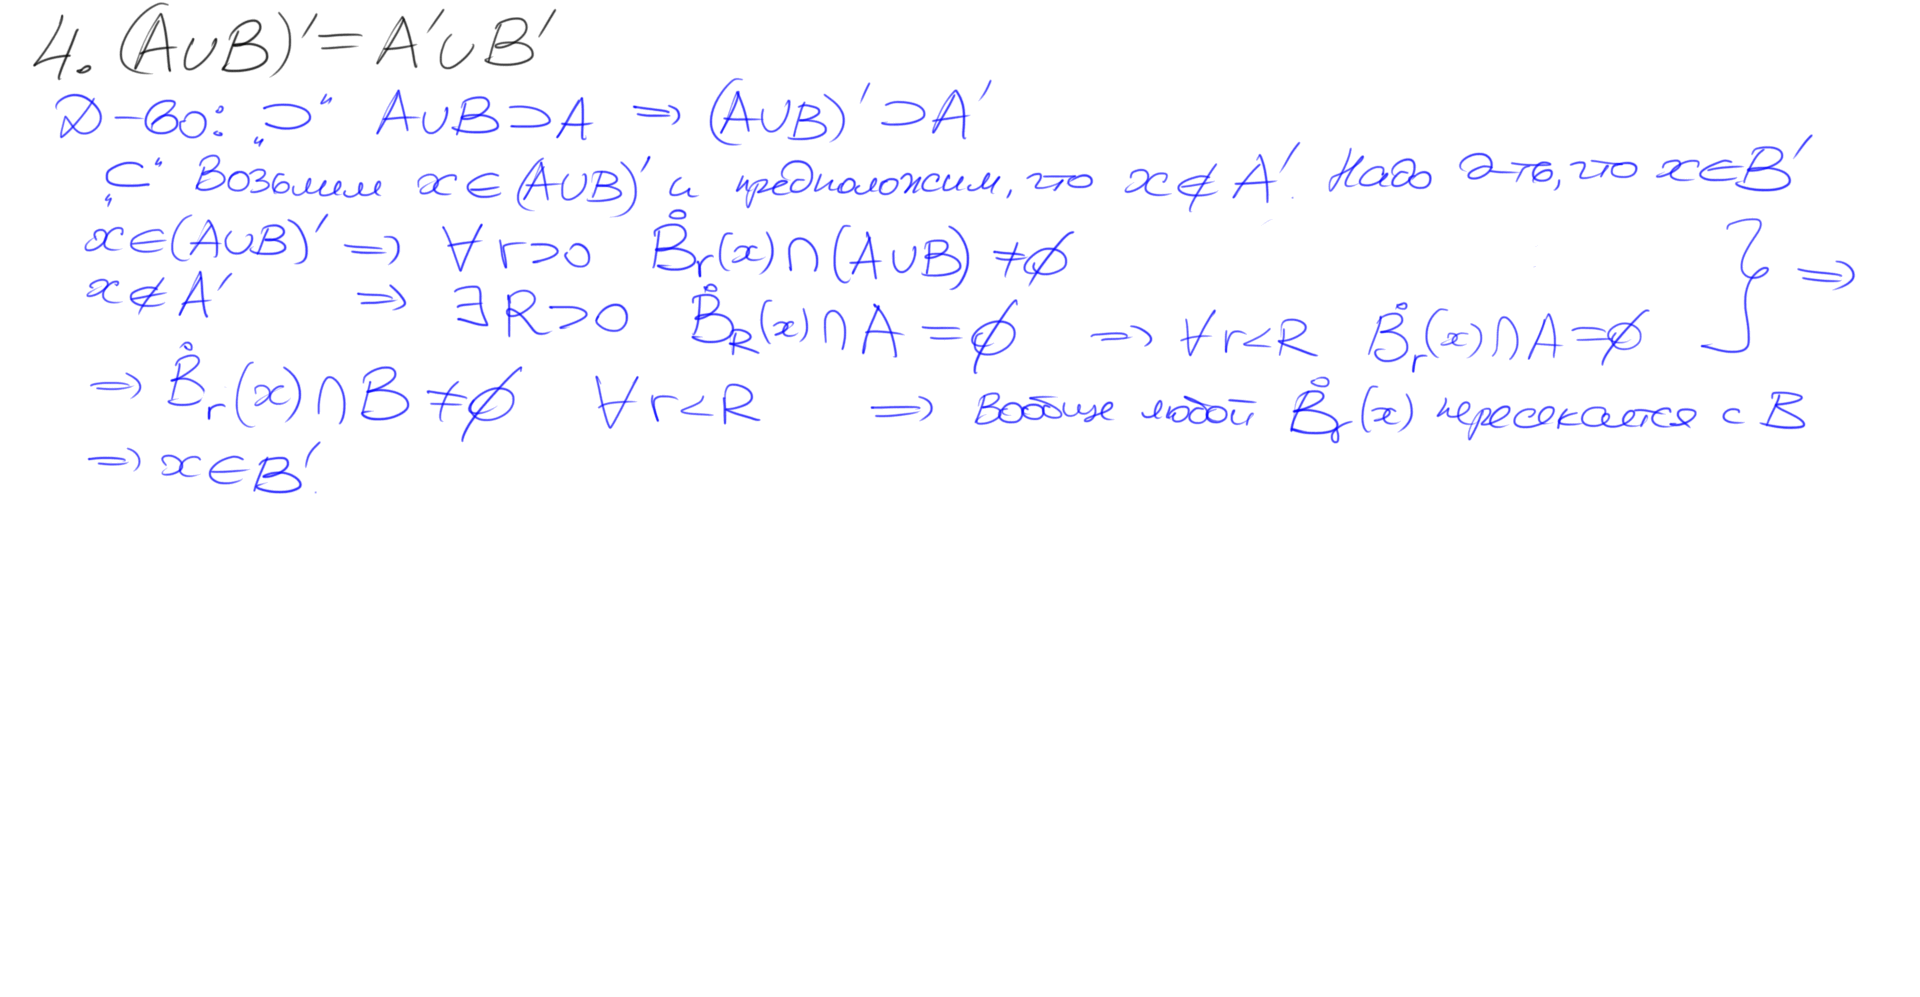 4. (A∪B)′ = A′∪B′
Д-во: „⊃“ A∪B⊃A ⇒ (A∪B)′⊃A′
„⊂“ Возьмем x∈(A∪B)′ и предположим, что x∉A′. Надо д-ть, что x∈B′
x∈(A∪B)′ ⇒ ∀r>0 B̊ᵣ(x)∩(A∪B)≠∅
x∉A′ ⇒ ∃R>0 B̊_R(x)∩A=∅ ⇒ ∀r<R B̊ᵣ(x)∩A=∅ } ⇒
⇒ B̊ᵣ(x)∩B≠∅ ∀r<R ⇒ вообще любой B̊ᵣ(x) пересекается с B
⇒ x∈B′.